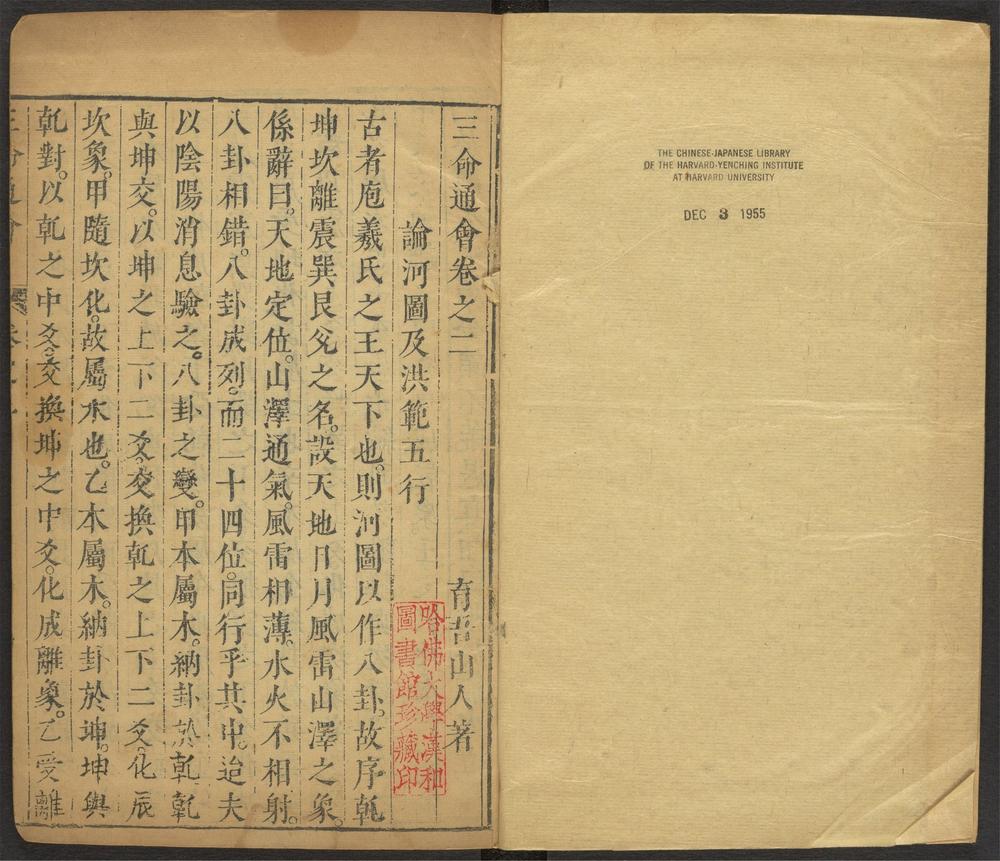 THE CHINESE-JAPANESE LIBRARY
OF THE HARVARD-YENCHING INSTITUTE
AT HARVARD UNIVERSITY
DEC 3 1955
三命通會卷之二
育吾山人著
論河圖及洪範五行
哈佛大學漢和
圖書館珍藏印
古者庖羲氏之王天下也。則河圖以作八卦。故序乹
坤坎離震巽艮兊之名。設天地日月風雷山澤之象。
係辭曰。天地定位。山澤通氣。風雷相薄。水火不相射。
八卦相錯。八卦成列。而二十四位。同行乎其中。迨夫
以陰陽消息驗之。八卦之變。甲本屬木。納卦於乹乹
與坤交。以坤之上下二爻。交換乹之上下二爻。化辰
坎象。甲隨坎化。故屬水也。乙本屬木。納卦於坤。坤與
乹對。以乹之中爻。交換坤之中爻。化成離象。乙受離